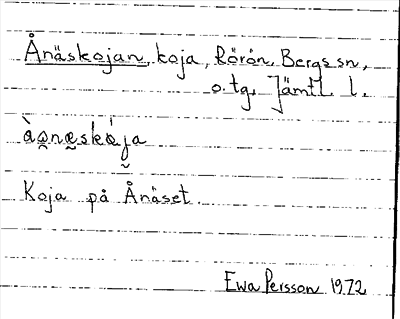 Ånäskojan, koja, Rörön, Bergs sn,
o. tg. Jämtl. l.
ào̯næskó̀ja
Koja på Ånäset.
Ewa Persson 1972